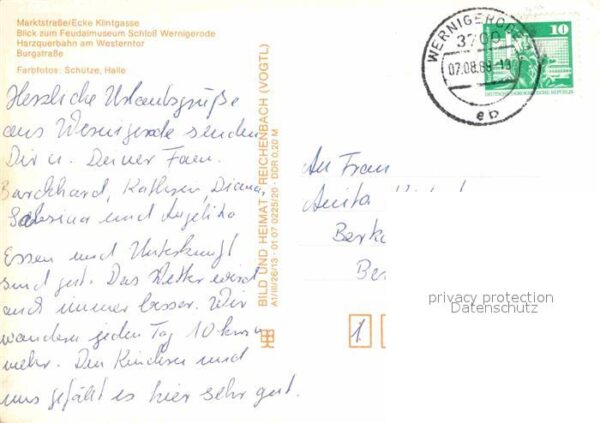 Marktstraße/Ecke Klintgasse
Blick zum Feudalmuseum Schloß Wernigerode
Harzquerbahn am Westerntor
Burgstraße
Farbfotos: Schütze, Halle
Herzliche Urlaubsgrüße
aus Wernigerode senden
Dir u. Deiner Fam.
Burckhard, Kathrin, Diana,
Sabrina und Angelika
Essen und Unterkunft
sind gut. Das Wetter wird
auch immer besser. Wir
wandern jeden Tag 10 km u.
mehr. Den Kindern und
uns gefällt es hier sehr gut.
BILD UND HEIMAT REICHENBACH (VOGTL)
A1/III/26/13 · 01 07 0225/20 · DDR 0,20 M
WERNIGERODE
3700
07.08.89-13
eb
10
DEUTSCHE DEMOKRATISCHE REPUBLIK
An Fam.
Anita
Berka
Be
1
privacy protection
Datenschutz